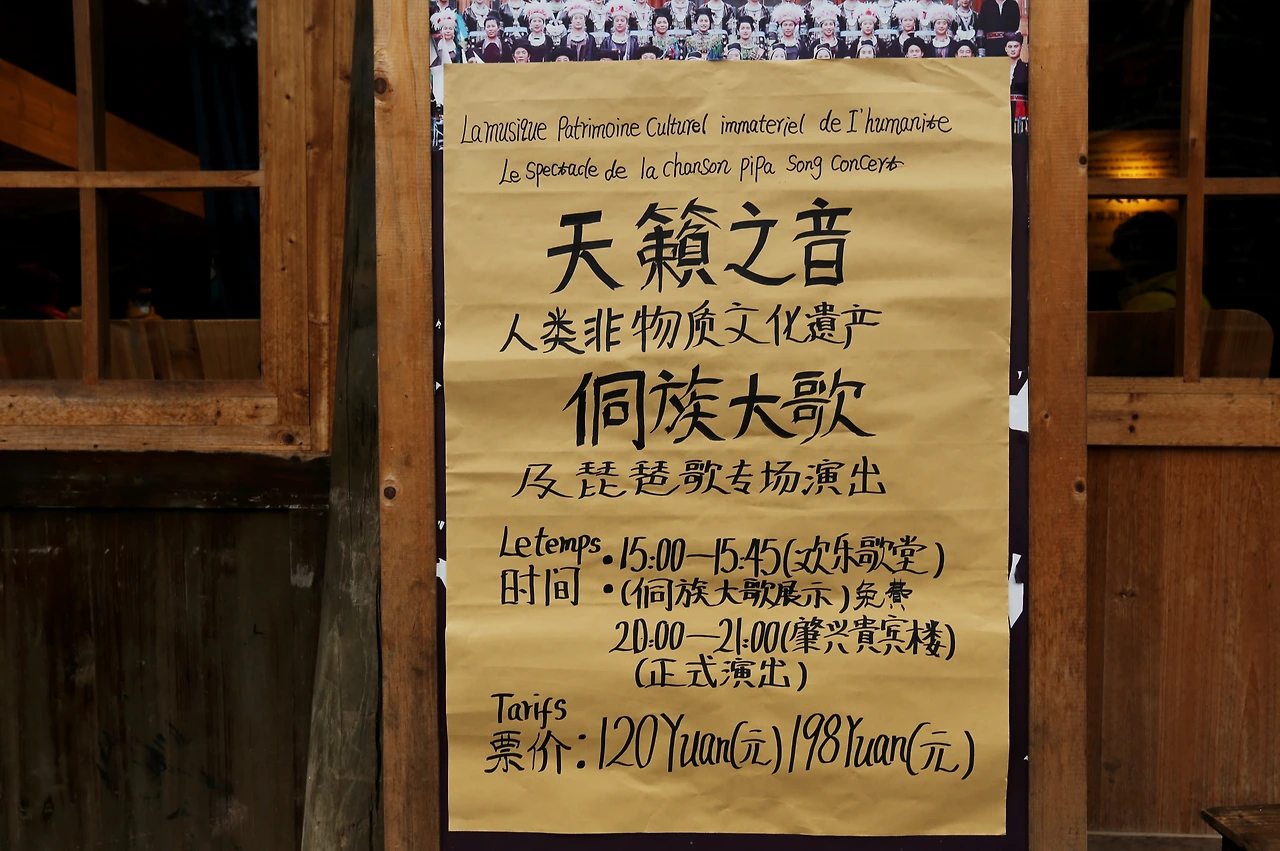 La musique Patrimoine Culturel immateriel de I'humanite
Le spectacle de la chanson pipa song concert
天籟之音
人类非物质文化遺产
侗族大歌
及琵琶歌专场演出
Le temps
时间
•15:00—15:45(欢乐歌堂)
•(侗族大歌展示)免費
20:00—21:00(肇兴貴宾楼)
(正式演出)
Tarifs
票价:120Yuan(元)198Yuan(元)